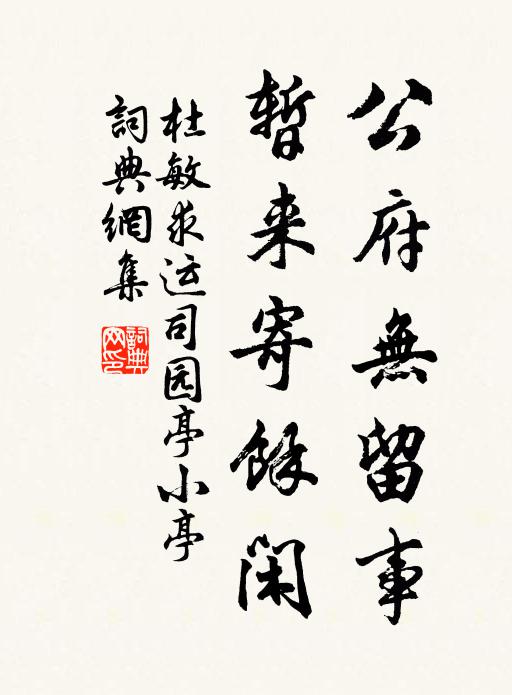 公府無留事
暫来寄餘閑
杜敏求运司园亭小亭
詞典網集
詞典網印